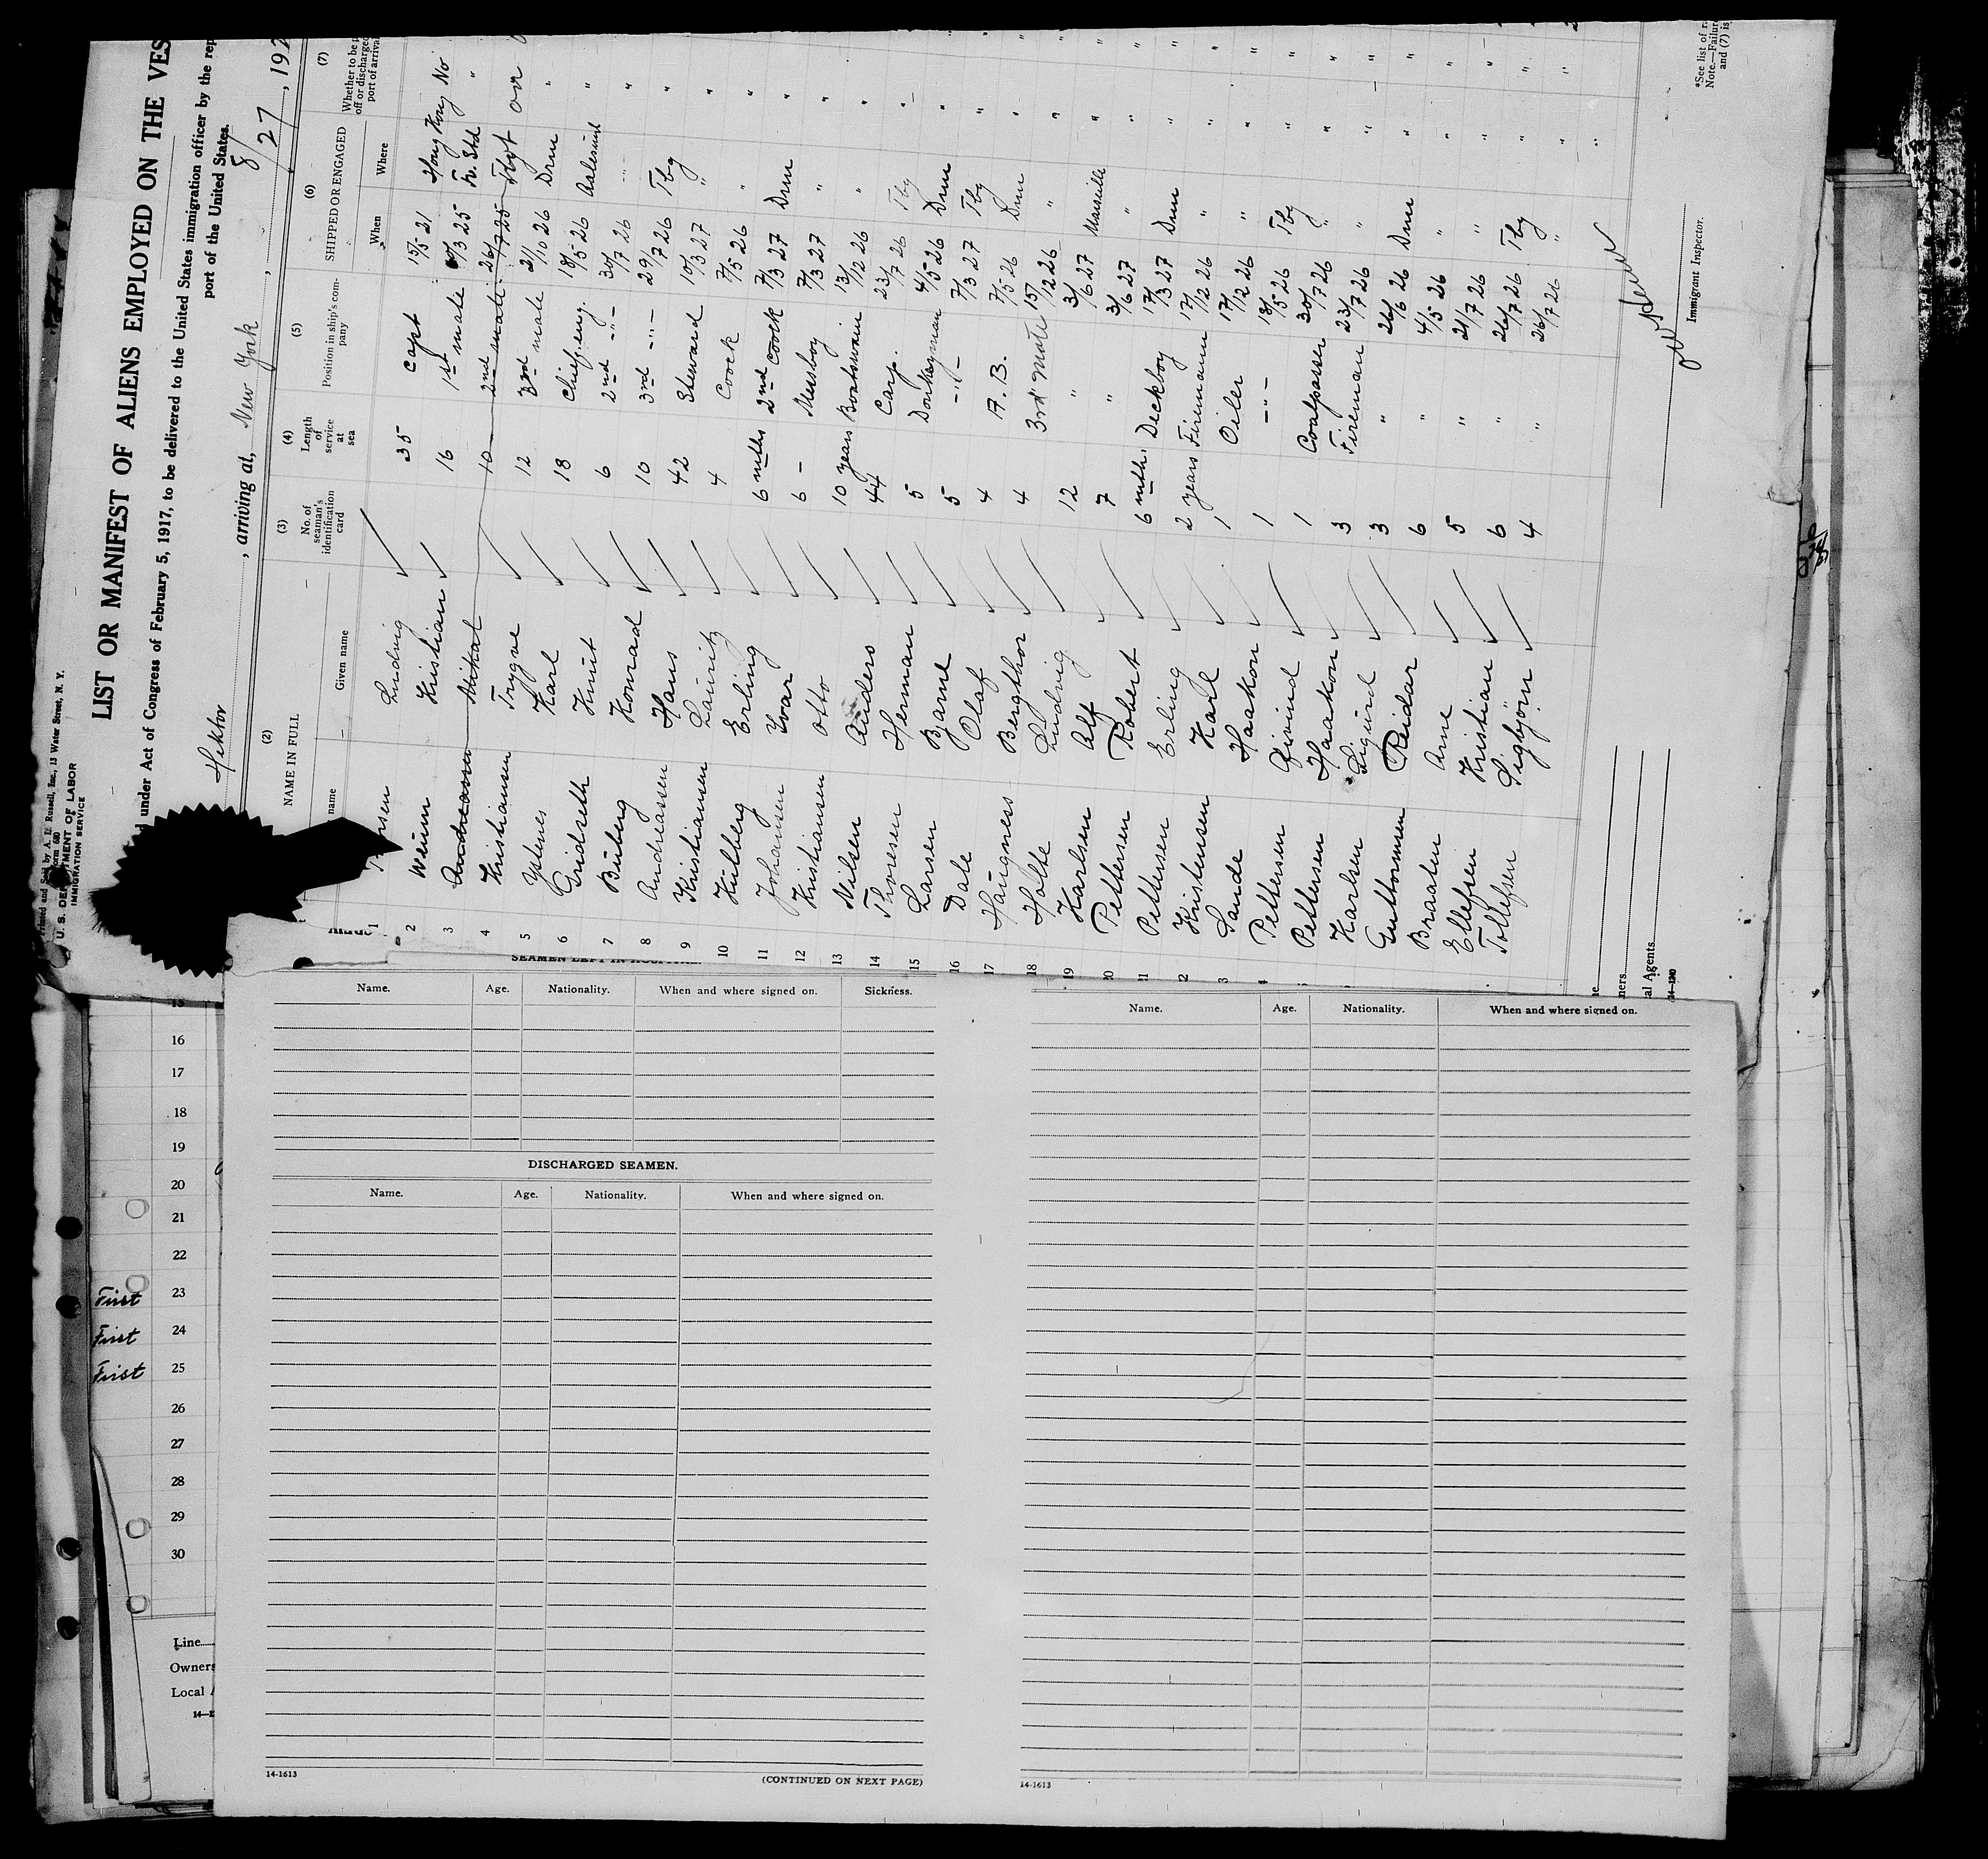 Form 680
U. S. DEPARTMENT OF LABOR
IMMIGRATION SERVICE
LIST OR MANIFEST OF ALIENS EMPLOYED ON THE VES
under Act of Congress of February 5, 1917, to be delivered to the United States immigration officer by the rep
port of the United States.
Hektor, arriving at, New York, 8/27, 192
(2) (3) (4) (5) (6) (7)
NAME IN FULL
name Given name
No. of seaman's identification card
Length of service at sea
Position in ship's company
SHIPPED OR ENGAGED
When Where
Whether to be p
off or discharged
port of arrival
1 Ludvig 35 Capt 15/5 21 Hong Kong No
2 Weum Kristian 16 1st mate 3 25 Fr. Std "
3 Andreassen Mikal 10 2nd mate 26/7 25
4 Kristiansen Trygve 12 3rd mate 21/10 26 Drm "
5 Ystenes Karl 18 Chief eng. 18/5 26 Aalesund "
6 Gridseth Knut 6 2nd -"- 30/7 26 "
7 Buberg Konrad 10 3rd -"- 29/7 26 Tbg "
8 Andreassen Hans 42 Steward 10/3 27 " "
9 Kristiansen Lauritz 4 Coock 7/5 26 " "
10 Hultberg Erling 6 mths 2nd coock 7/3 27 Drm "
11 Johansen Ivar 6 - Messboy 7/3 27 " "
12 Kristiansen Otto 10 years Boatswain 13/12 26 " "
13 Nilsen Anders 44 Carp. 23/7 26 Tbg "
14 Thoresen Herman 5 Donkeyman 4/5 26 Drm "
15 Larsen Bjarne 5 -"- 7/3 27 Tbg "
16 Dale Olaf 4 A. B. 7/5 26 Drm "
17 Haugness Bergthor 4 3rd Mate 15/12 26 " "
18 Holte Ludvig 12 " 3/6 27 Marseille "
19 Karlsen Alf 7 " 3/6 27 " "
20 Pettersen Robert 6 mth. Deckboy 17/3 27 Drm "
21 Pettersen Erling 2 years Firemann 17/12 26 " "
2 Kristensen Karl 1 Oiler 17/12 26 " "
3 Sande Haakon 1 -"- 18/5 26 Tbg "
4 Pettersen Eivind 1 Coalpasser 30/7 26 " "
5 Pettersen Haakon 3 Fireman 23/7 26 " "
Karlsen Sigurd 3 " 26/6 26 Drm "
Guttormsen Reidar 6 " 4/5 26 " "
Braaten Arne 5 " 21/7 26 " "
Ellefsen Kristian 6 " 26/7 26 Tbg "
Tollefsen Sigbjörn 4 " 26/7 26 " "
Immigrant Inspector.
*See list of r
Note.—Failur
and (7) is
ners
al Agents
14—1240
Name. Age. Nationality. When and where signed on. Sickness.
DISCHARGED SEAMEN.
Name. Age. Nationality. When and where signed on.
14-1613
(CONTINUED ON NEXT PAGE)
Name. Age. Nationality. When and where signed on.
14-1613
15
16
17
18
19
20
21
22
First 23
First 24
First 25
26
27
28
29
30
Line
Owners
Local A